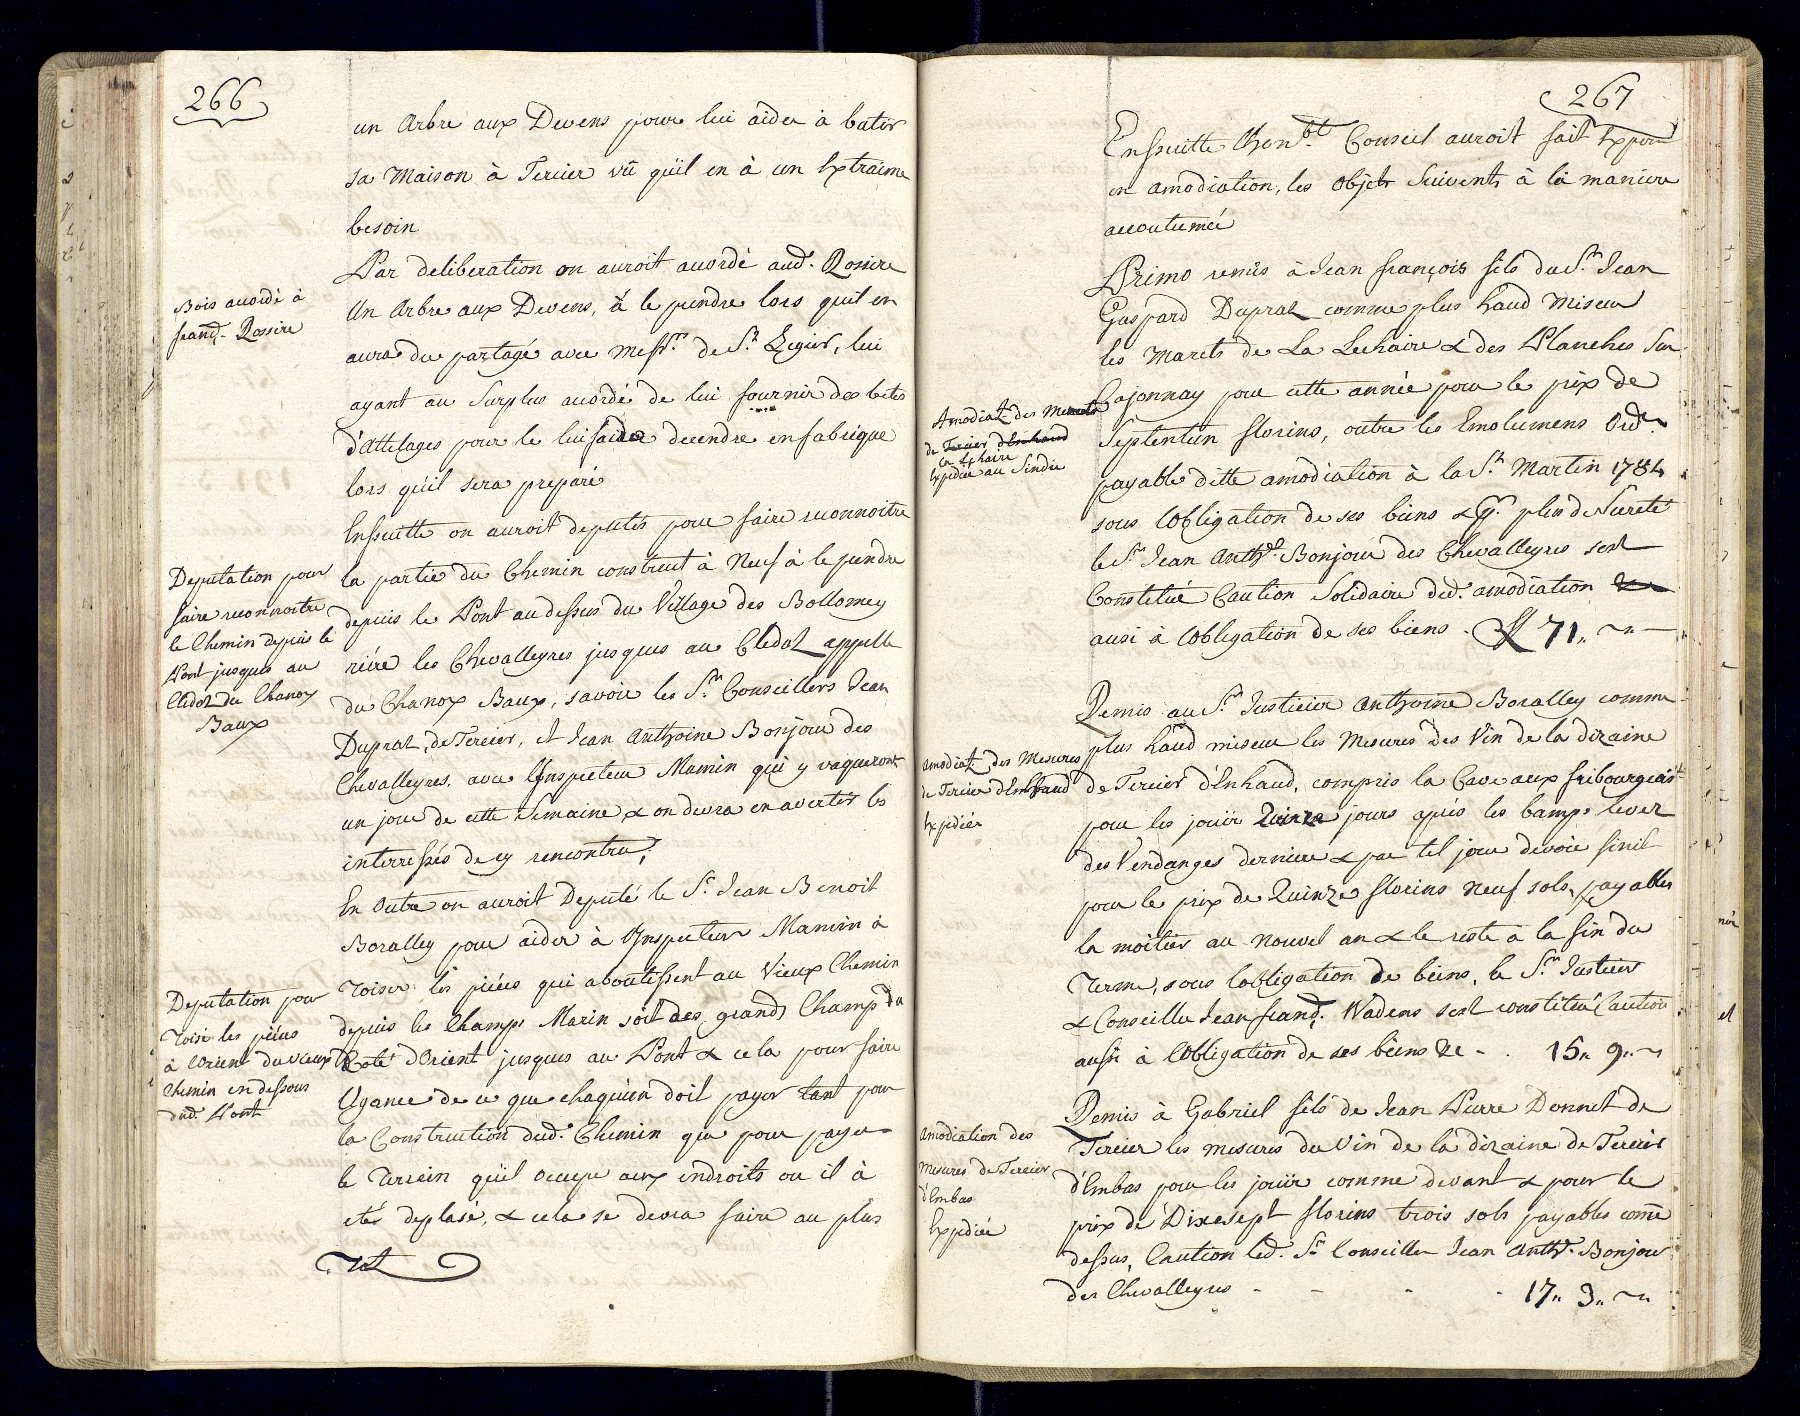 266
un Arbre aux Devens pour lui aider à batir
sa Maison à Tercier vû qu'il en à un Extraime
besoin
Par deliberation on auroit acordé aud. Rossire
Bois acordé à
frand. Rossire
Un Arbre aux Devens, à le prendre lors quil en
aura du partagé avec Messrs de St. Legier, lui
ayant au Surplus acordé de lui fournir des betes
d'Attelages pour le lui faire decendre en fabrique
lors qu'il sera preparé
Ensuitte on auroit deputés pour faire reconnoitre
Deputation pour
faire reconnoitre
le Chemin depuis le
Pont jusques au
Clédoz du Chanox
Baux
la partie du Chemin construit à Neuf à le prendre
depuis le Pont au dessus du Village des Bollomey
riére les Chevalleyres jusques au Cledoz appellé
du Chanox Baux, savoir les Srs Conseillers Jean
Dupraz, de Tercier, et Jean Anthoine Bonjour des
Chevalleyres, avec l'Inspecteur Mamin qui y vaqueront
un jour de cette Semaine & on devra en avertir les
interressés de cy rencontrer;
En Outre on auroit Deputé le Sr. Jean Benoit
Boralley pour aider à l'Inspecteur Mamin à
Deputation pour
Toiser les piéces
à l'Orient du vieux
Chemin en dessous
dud. Pont
Toiser les piéces qui aboutissent au Vieux Chemin
depuis les Champs Marin soit des grands Champs du
Coté d'Orient jusques au Pont & cela pour faire
Egance de ce que chaqu'un doit payer tant pour
la Construction dud. Chemin que pour payer
le Terrein qu'il occupe aux endroits ou il à
etés deplasé, & cela se devra faire au plus
Tot
267
Ensuitte l'honble. Conseil auroit fait Exposer
en amodiation, les Objets Suivents à la maniere
accoutumée
Primo remis à Jean françois fils du Sr. Jean
Gaspard Dupraz comme plus haud Miseur
les Marets de La Lechaire & des Planches Sur
Cojonnay pour cette année pour le prix de
Amodiat. des Marets
de Tercier d'Enhaud
La Lechaire
Expediée au Sindic
Septentun florins, outre les Emolumens Ord.
payable ditte amodiation à la St. Martin 1784
sous l'obligation de ses biens & Gr. plus de Sureté
le Sr. Jean Anthe. Bonjour des Chevalleyres sest
Constitué Caution Solidaire de d. amodiation
ausi à l'obligation de ses biens. fl 71"
Remis au Sr. Justicier Anthoine Boralley comme
plus haud miseur les Mesures des Vin de la dizaine
Amodiat. des Mesures
de Tercier d'Enhaud
Expediée
de Tercier d'Enhaud, compris la Cave aux fribourgeois
pour les jouir Quinze jours aprés les bamps lever
des Vendanges derniere & par tel jour devoir finir
pour le prix de Quinze florins Neuf sols, payables
la moitier au Nouvel an & le reste à la fin du
Terme, sous l'obligation de biens, le Sr. Justicier
& Conseiller Jean frand. Wadens sest constitué Caution
ausi à l'obligation de ses biens &c - . 15" 9"
Remis à Gabriel fils de Jean Pierre Donnet de
Amodiation des
Mesures de Tercier
d'Embas
Expediée
Tercier les mesures du Vin de la dizaine de Tercier
d'Embas pour les jouir comme devant & pour le
prix de Dixesept florins trois sols payables comme
dessus, Caution led. Sr. Conseiller Jean Anthe. Bonjour
des Chevalleyres - - - - 17" 3"